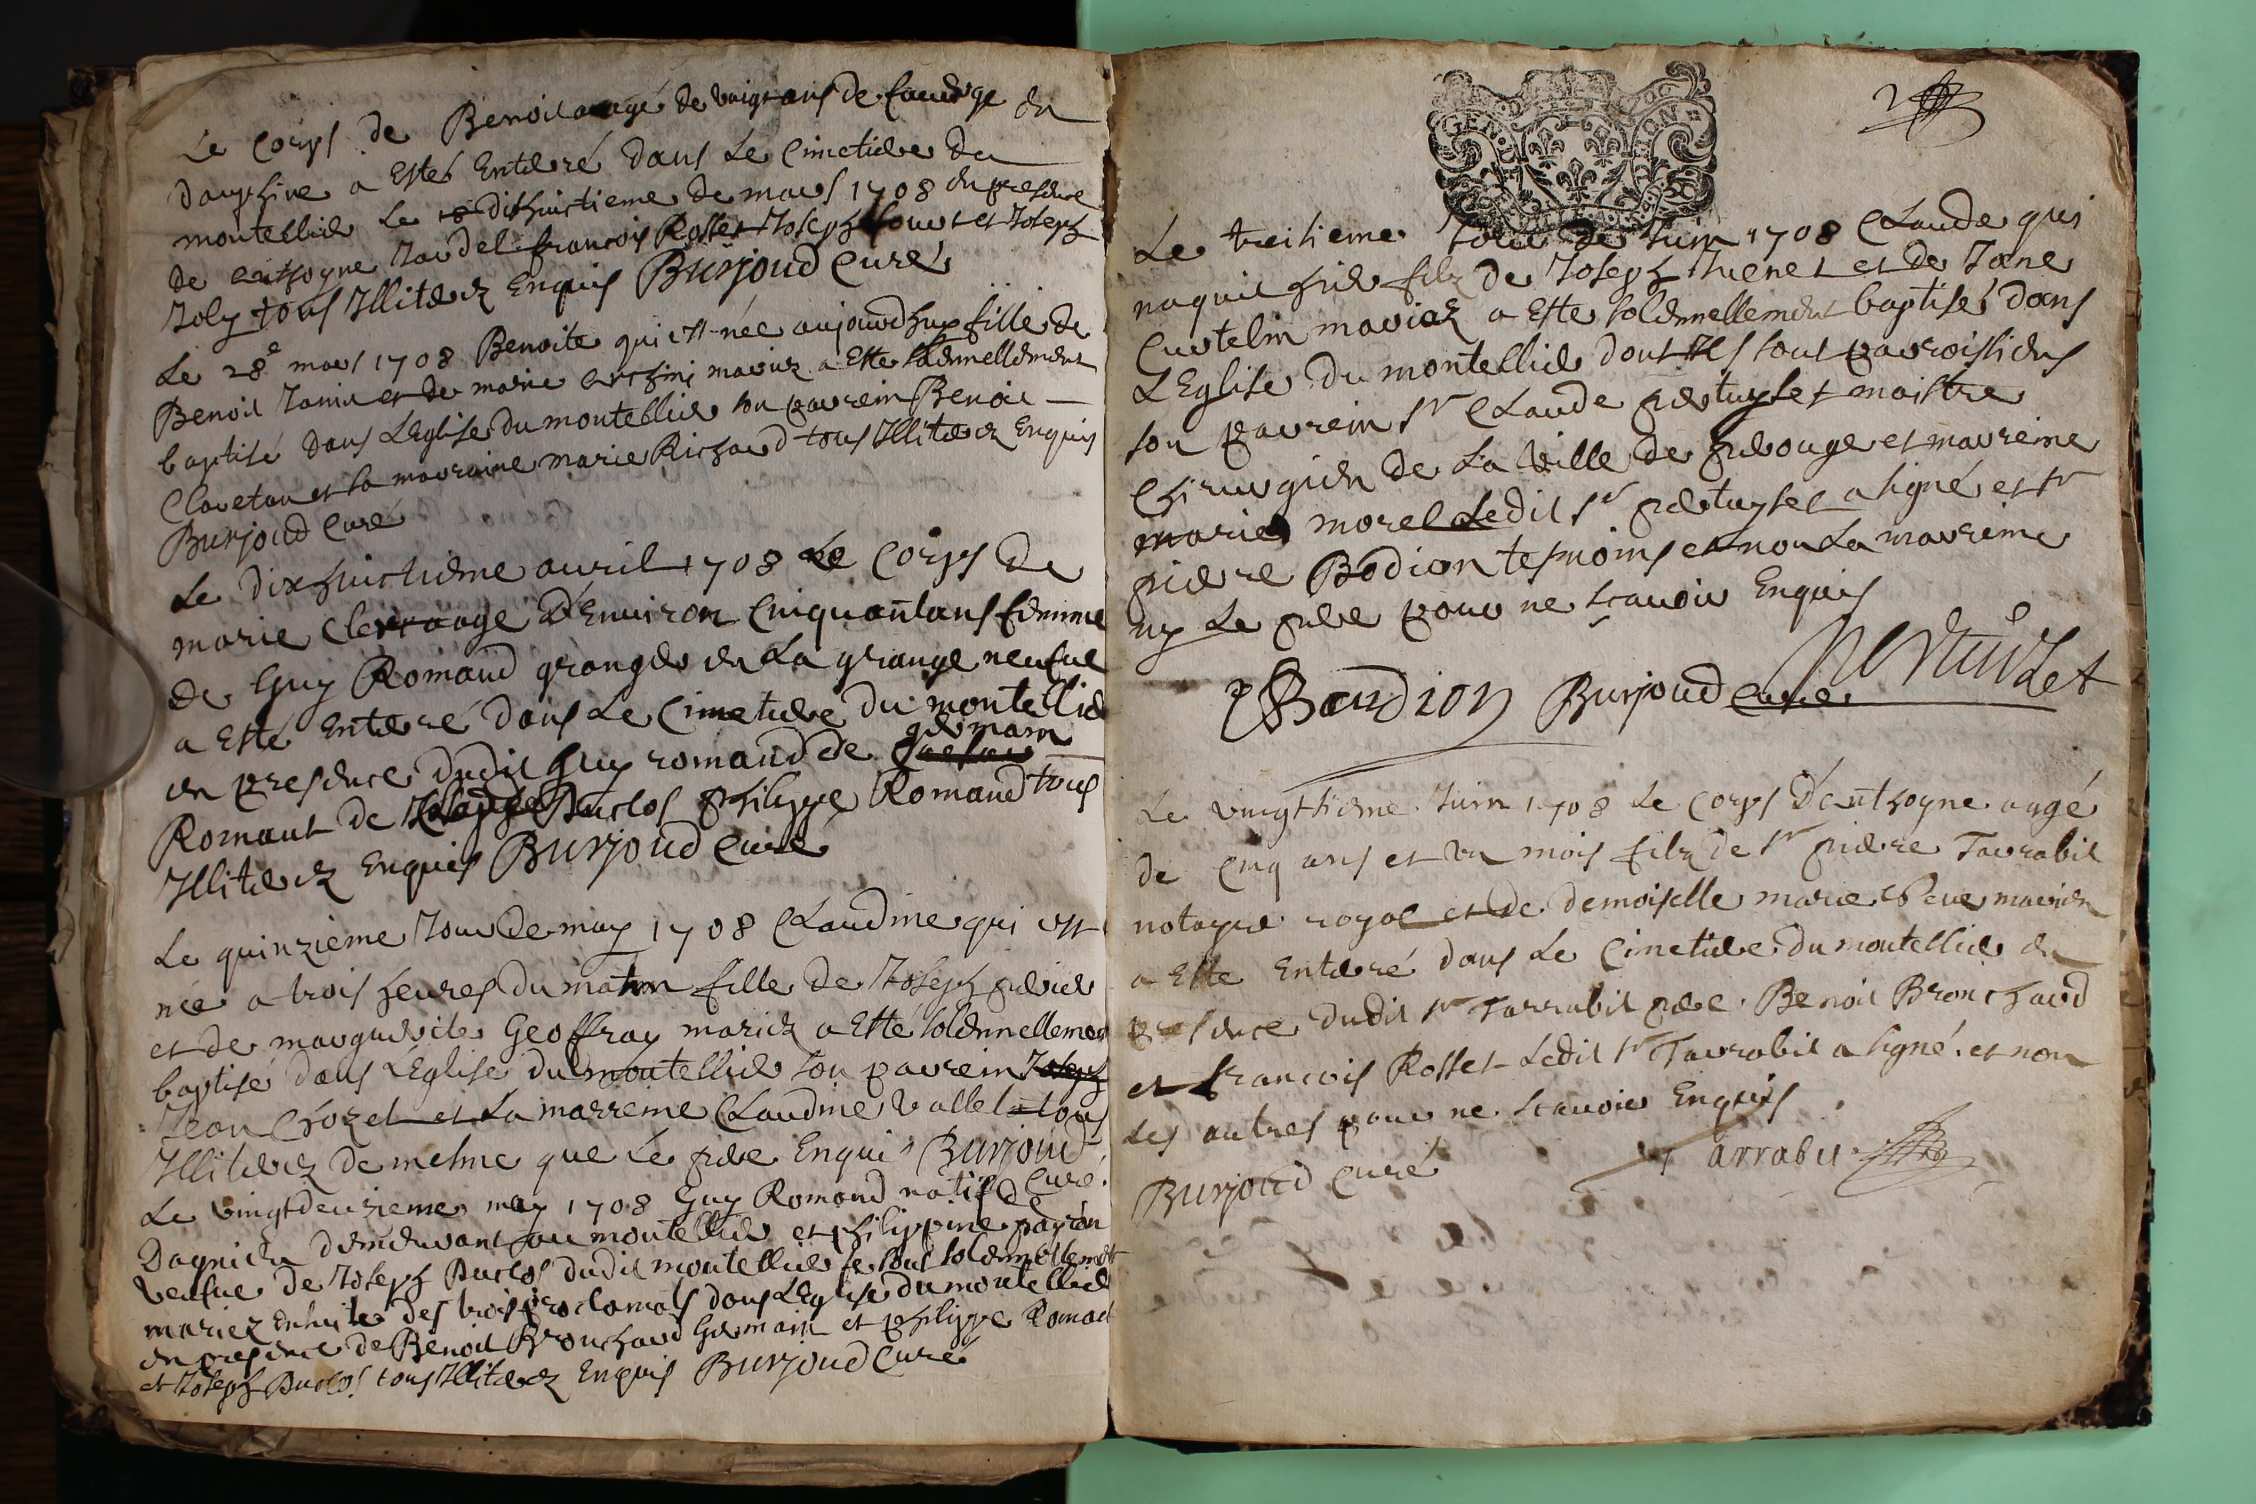 Le Corps de Benoit aagé de vingt ans de en
Dauphine a Esté Enterré dans Le Cimetiere du
montellier Le 18 dixhuictieme de mars 1708 en presence
de enthoyne Jardel francois Rosset Joseph et Joseph
Joly tous Illiterez Enquis Burjoud Curé
Le 28e mars 1708 Benoite qui est née aujourdhuy fille de
Benoit Janin et de marie mariez a Esté solennellement
baptisé dans LEglise du montellier son parrein Benoit
Claretan et sa marraine marie Richard tous Illiterez Enquis
Burjoud Curé
Le dixhuictieme auril 1708 Le Corps de
marie aagé DEnuiron Cinquant ans femme
de Guy Romand granger en La grange neufue
a Esté Enterré dans Le Cimetiere du montellier
en presence dudit Guy romand de germain
Romant de Duclos philippe Romand tous
Illiterez Enquis Burjoud Curé
Le quinzieme Jour de may 1708 Claudine qui est
née a trois heures du matin fille de Joseph
et de marguerite Geoffray mariez a Esté solennellement
baptisé dans LEglise du montellier son parrein Joseph
Jean Chozet et La marreine Claudine Vallet tous
Illiterez de mesme que Le pere Enquis Burjoud
Curé
Le vingtdeuxieme may 1708 Guy Romand natif de
Dagnieu demeurant au montellier et philippine
veufue de Joseph Duclos dudit montellier se sont solennellement
mariez Ensuite des trois proclamats dans LEglise du montellier
en presence de Benoit Brouchard Germain et philippe Romand
et Joseph Duclos tous Illiterez Enquis Burjoud Curé
2
GEN DIJON
Le treisieme Jour de Juin 1708 Claude qui
naquit hier filz de Joseph Juenet et de Jane
Curtelin mariez a Esté solennellement baptisé dans
LEglise du montellier dont Ils sont parroissiens
son parrein Sr Claude pertuyset maistre
Chirurgien de La Ville de perouge et marreine
marie morel Ledit Sr pertuyset a signé et Sr
pierre Bodion tesmoins et non La marreine
ny Le pere pour ne scauoir Enquis
P Baudion Burjoud Curé Pertuizet
Le vingttieme Juin 1708 Le Corps dEnthoyne aagé
de Cinq ans et un mois filz de Sr pierre Tarrabit
notayre royal et de demoiselle marie mariez
a Esté Enterré dans Le Cimetiere du montellier en
presence dudit Sr Tarrabit pere Benoit Bronchard
et francois Rosset Ledit Sr Tarrabit a signé et non
Les autres pour ne scauoir Enquis
Burjoud Curé Tarrabit